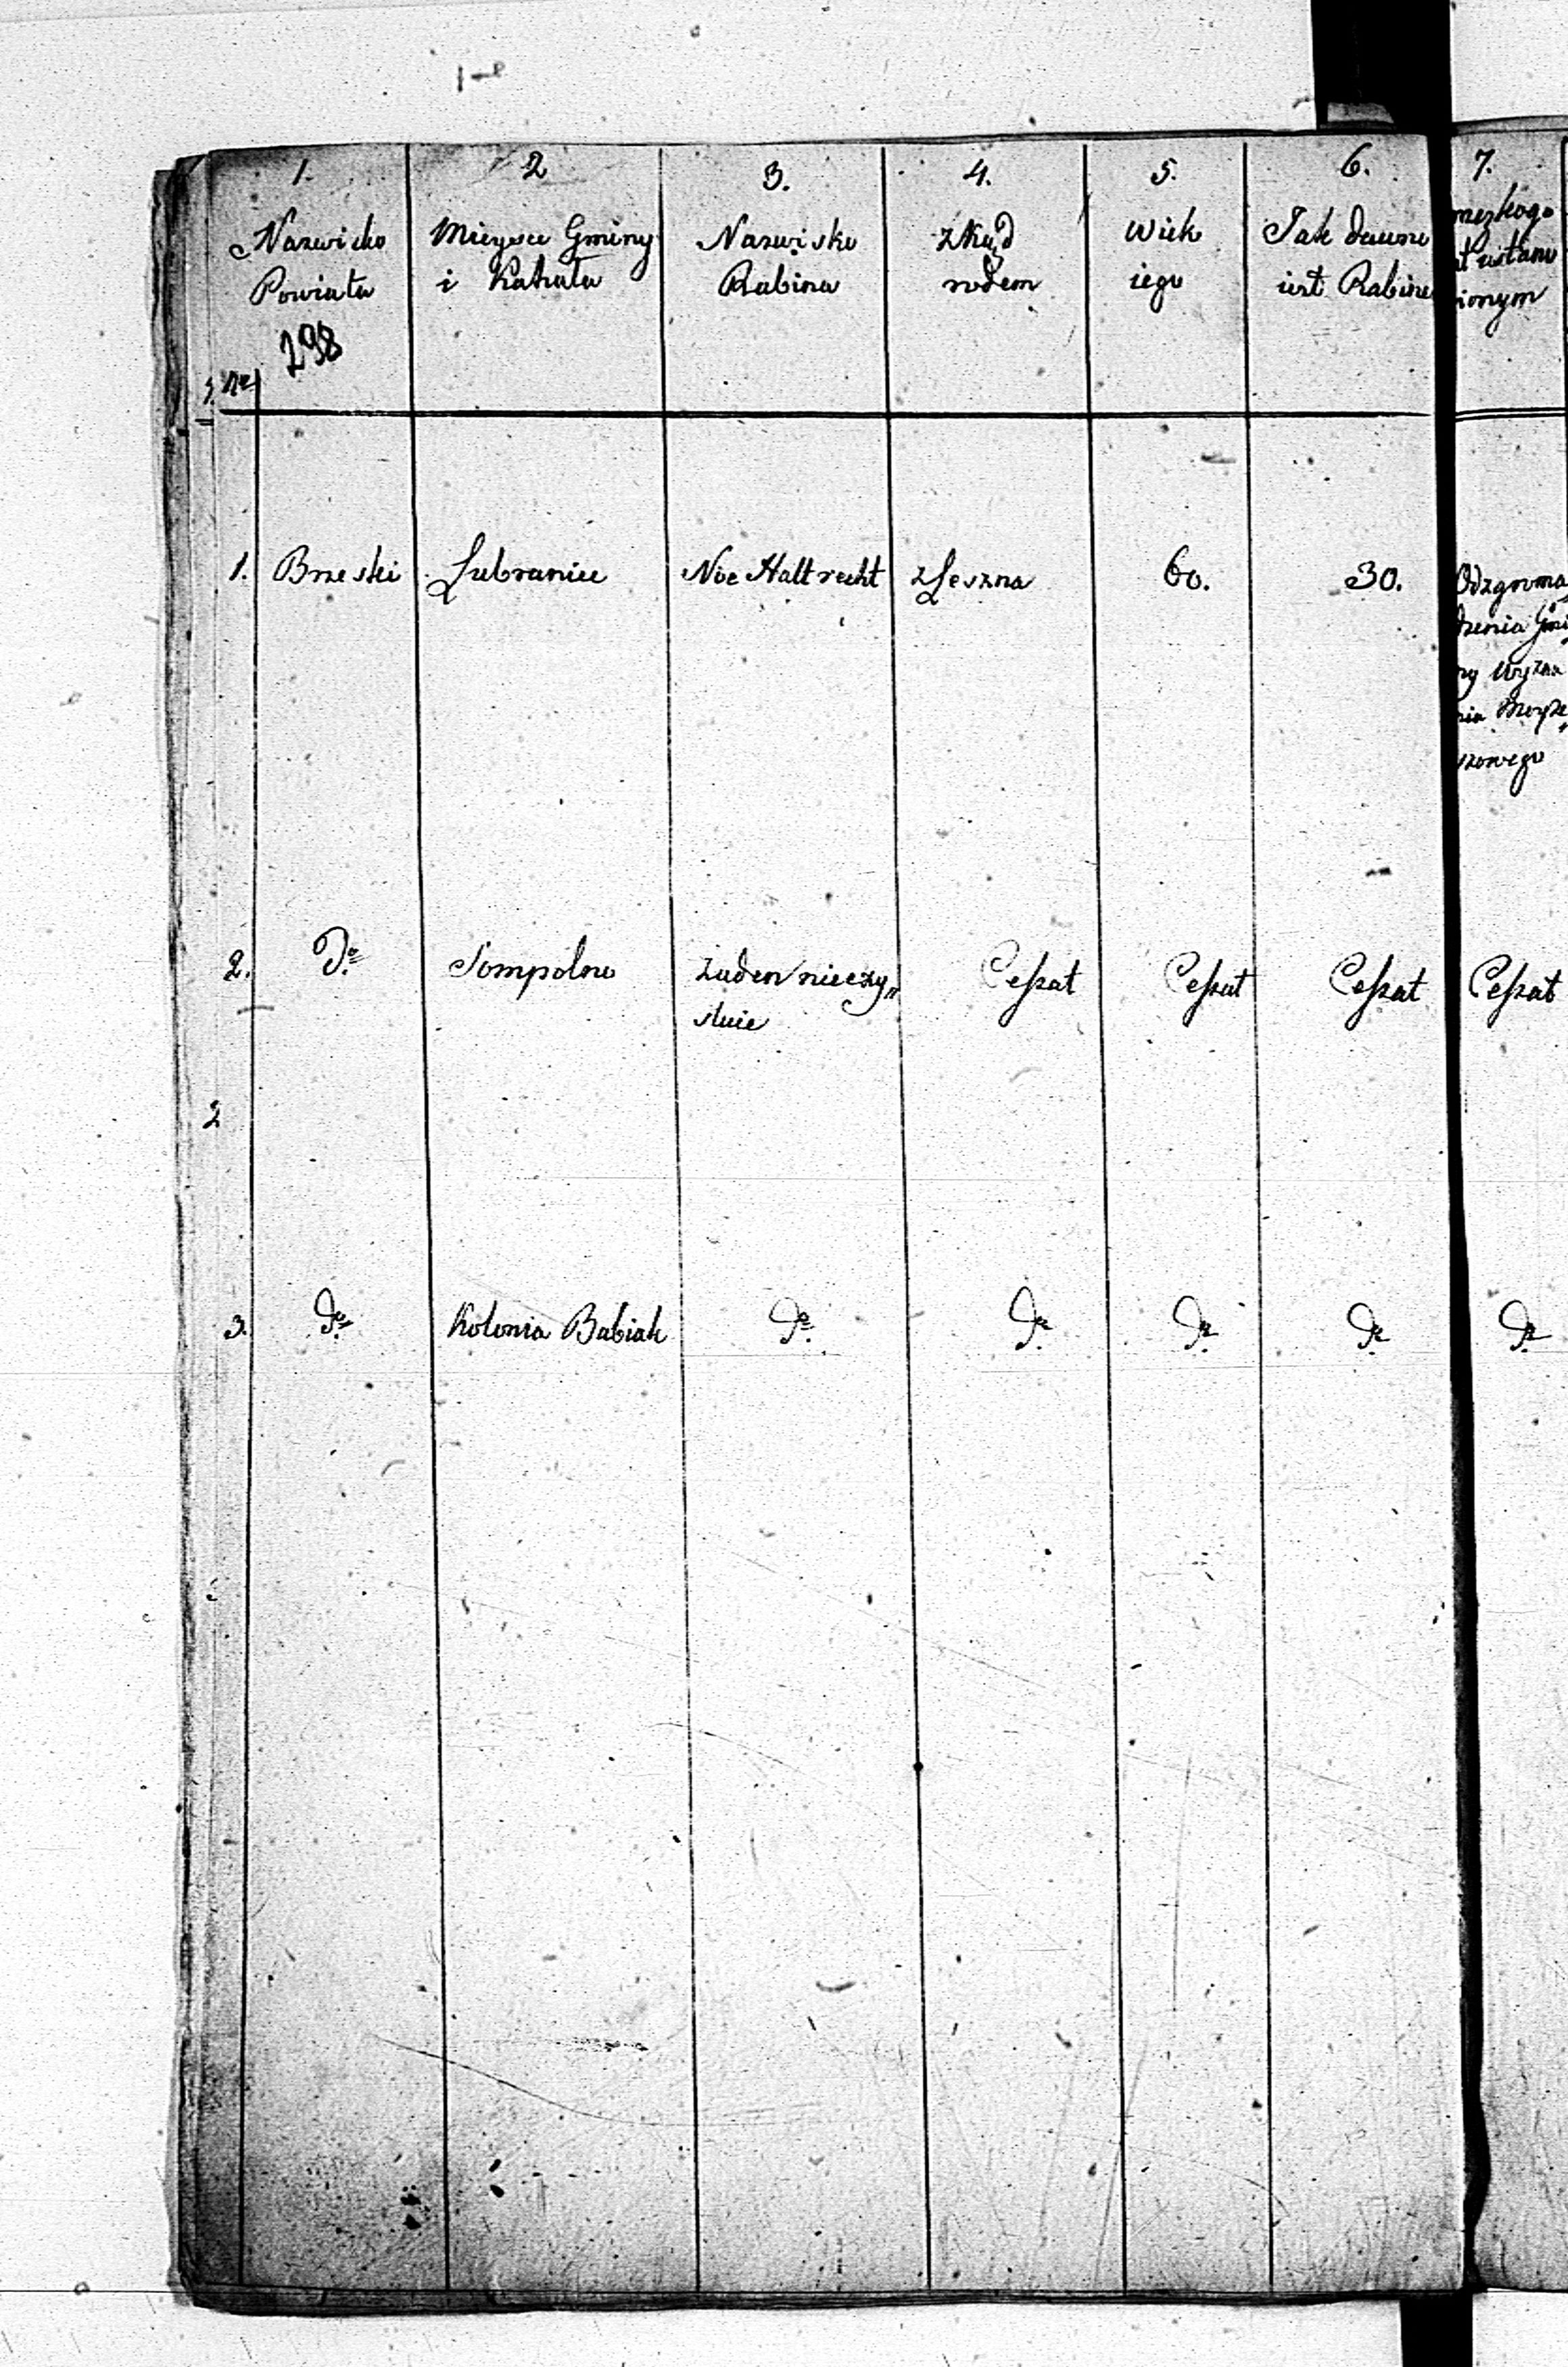 1.
Nazwisko
Powiatu
298
Nro
2
Mieysce Gminy
i Kahału
3.
Nazwisko
Rabina
4.
zkąd
rodem
5.
Wiek
iego
6.
Jak dawno
iest Rabinem
7.
ustano
ionym
1. Brzeski Lubraniec Noe Haltrecht z Leszna 60. 30. Od zgroma
dzenia Gmi
ny Wyzna
nia Moyże
szowego
2. Do Sompolno żaden nieczy„ Cessat Cessat Cessat Cessat
stuie
2
3. Do Kolonia Babiak Do Do Do Do Do